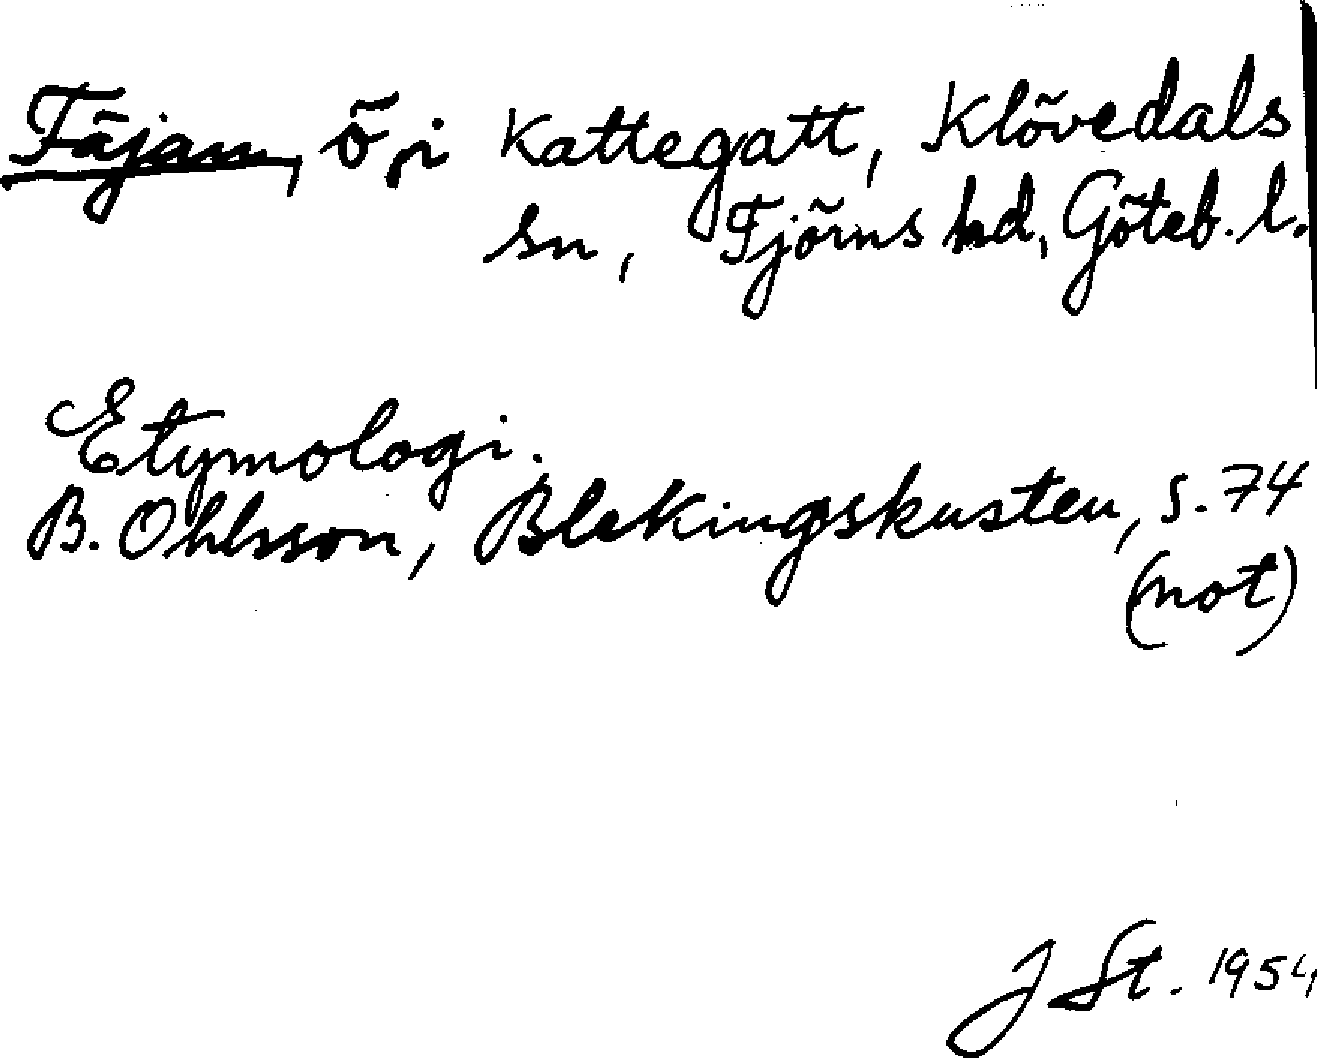 Fäjan, ö, i Kattegatt, Klövedals
sn, Tjörns hd, Göteb. l.
Etymologi.
B. Ohlsson, Blekingskusten, s. 74
(not)
J St. 1954